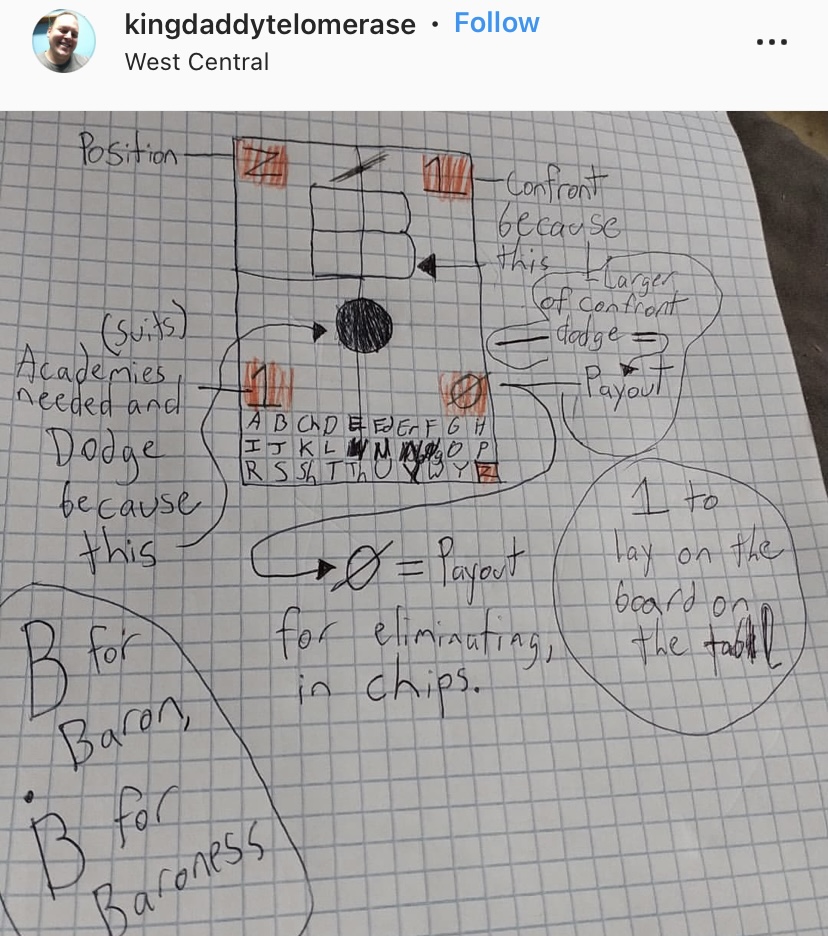 kingdaddytelomerase • Follow
West Central
Position
Z
1
Confront
because
this
Larger
of confront
- dodge =
Payout
(suits)
Academies
needed and
Dodge
because
this
1
Ø
A B Ch D E Ed Er F G H
I J K L N O P
R S Sh T Th U W Y Z
Ø = Payout
for eliminating,
in chips.
1 to
lay on the
board on
the table
B for
Baron,
B for
Baroness